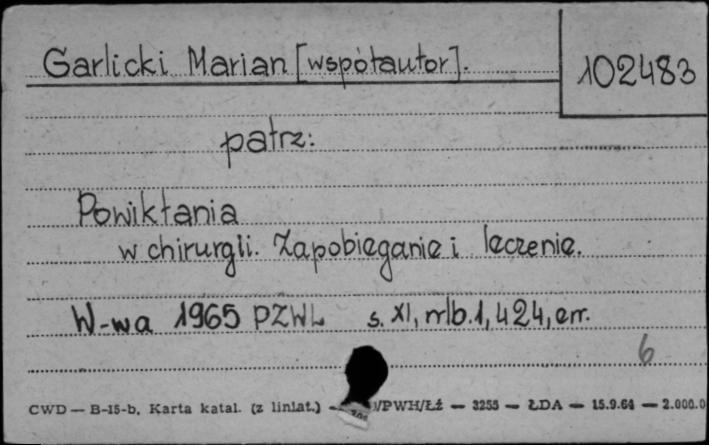 Garlicki Marian [współautor].
102483
patrz:
Powikłania
w chirurgii. Zapobieganie i leczenie.
W-wa 1965 PZWL s. XI, nlb. 1, 424, err.
6
CWD — B-15-b, Karta katal. (z liniat.) — /PWH/Łź — 3255 — ŁDA — 15.9.64 — 2.000.0